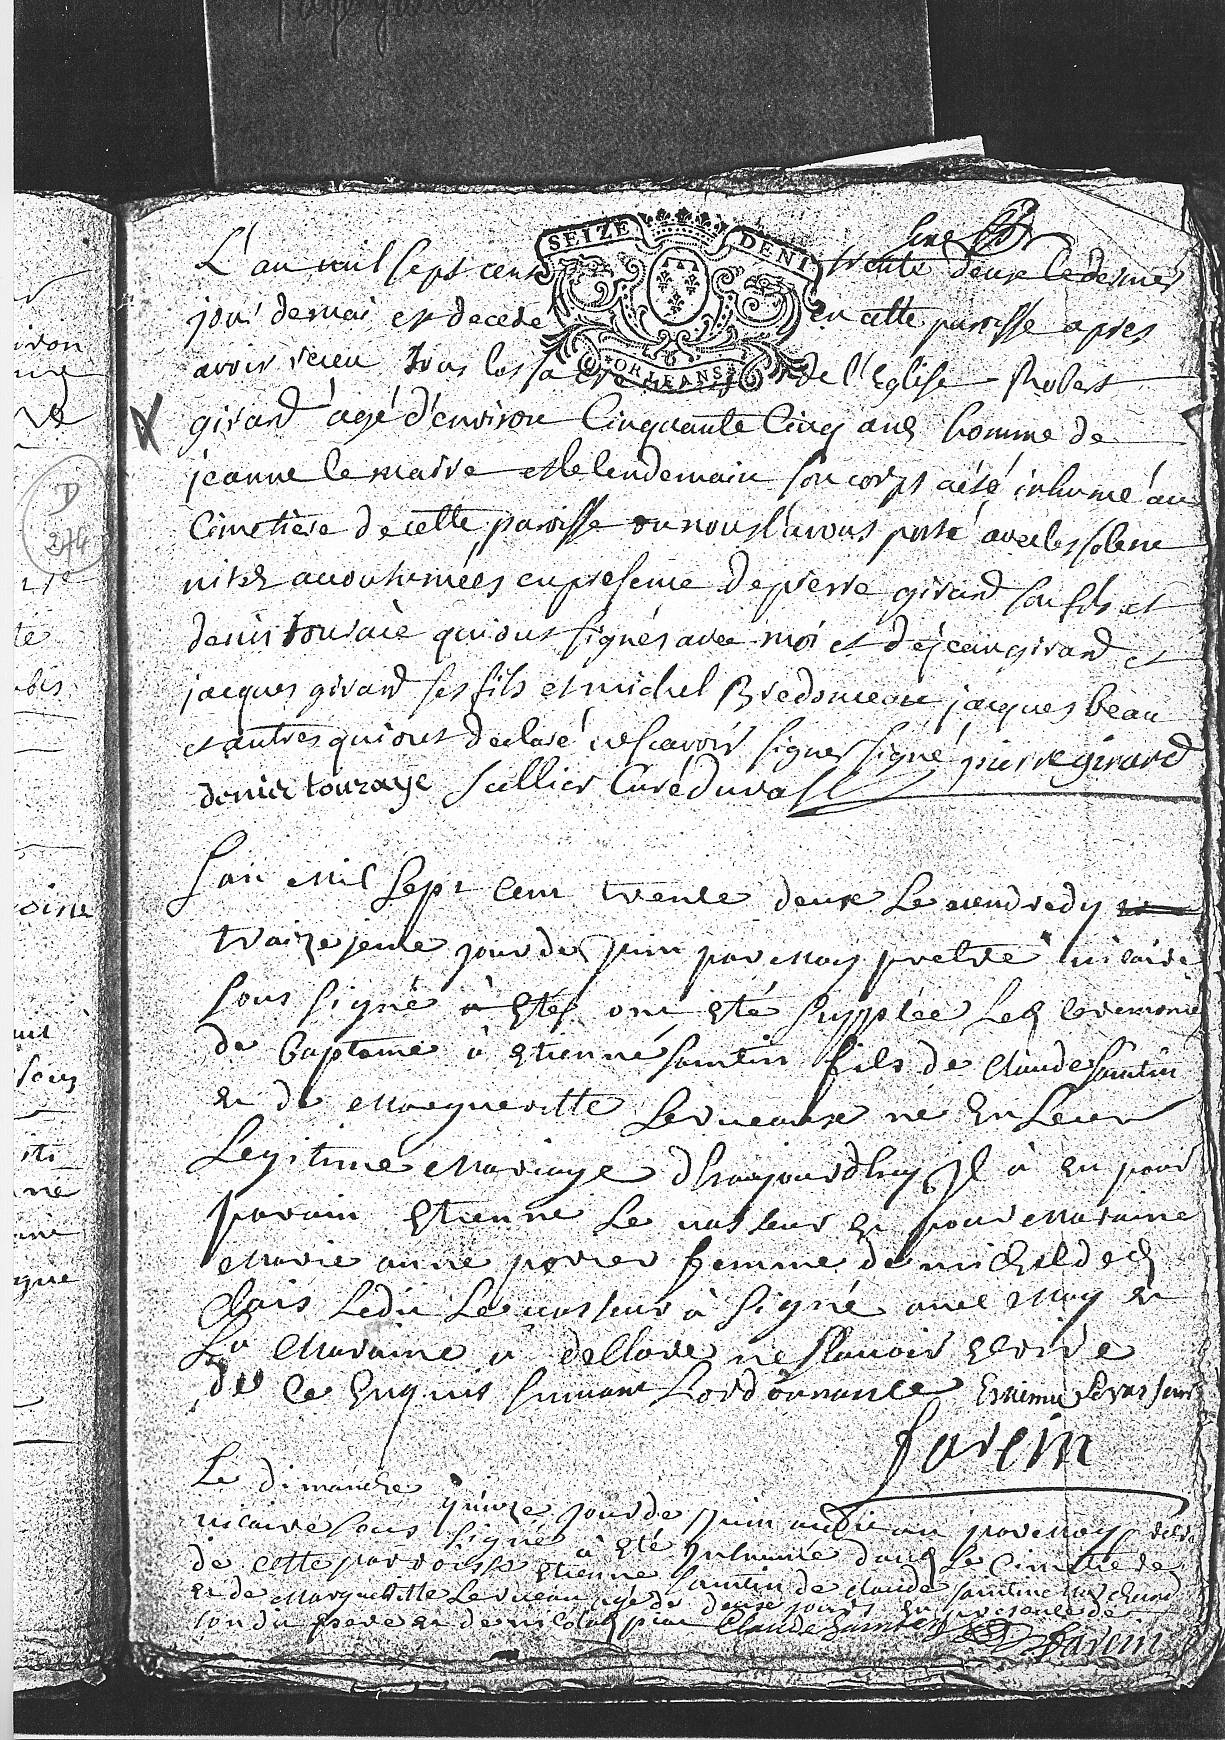 SEIZE DENI
ORLEANS
L'an mil sept cens trente deux le dernier
jour de mai est decede en cette paroisse apres
avoir receu tous les sa de l'Eglise Robert
girard agé d'environ Cinquante Cinq ans homme de
jeanne le maire et le lendemain son corps a été inhumé au
Cimetière de cette paroisse ou nous l'avons porté avec les solem
nités accoutumées en presence de pierre girard son fils et
denis touraie qui ont signés avec moi et de jean girard et
jacques girard ses fils et michel Bredonneau jacques beau
et autres qui ont declaré ne scavoir signer signé pierre girard
denis touraye Sellier Curé du
D
274
L'an mil sept cent trente deux le vendredy
traizejeme jour de juin par moy pretre vicaire
sous signé à été ont été supplée les ceremonies
de bapteme à Etienne saintin fils de Claude saintin
et de Margueritte Lerueaux né en Leur
Legitime mariage d'haujourdhuy Il à eu pour
parain Etienne Le vasseur et pour maraine
marie anne porier femme de michel des
Clois Ledit Levasseur à signé avec moy et
La Maraine a declaré ne sçavoir ecrire
de ce Enquis suivant Lordonnance Etienne Levasseur
farcin
Le dimanche quinze jour de juin audit an par moy
vicaire sous signé à été inhumé dans Le Cimetiere
de cette parroisse Etienne saintin de Claude saintin marchand
et de Margueritte Lerueau agé de deux jours en presence de
son dit pere et de nicolas Claude saintin farcin